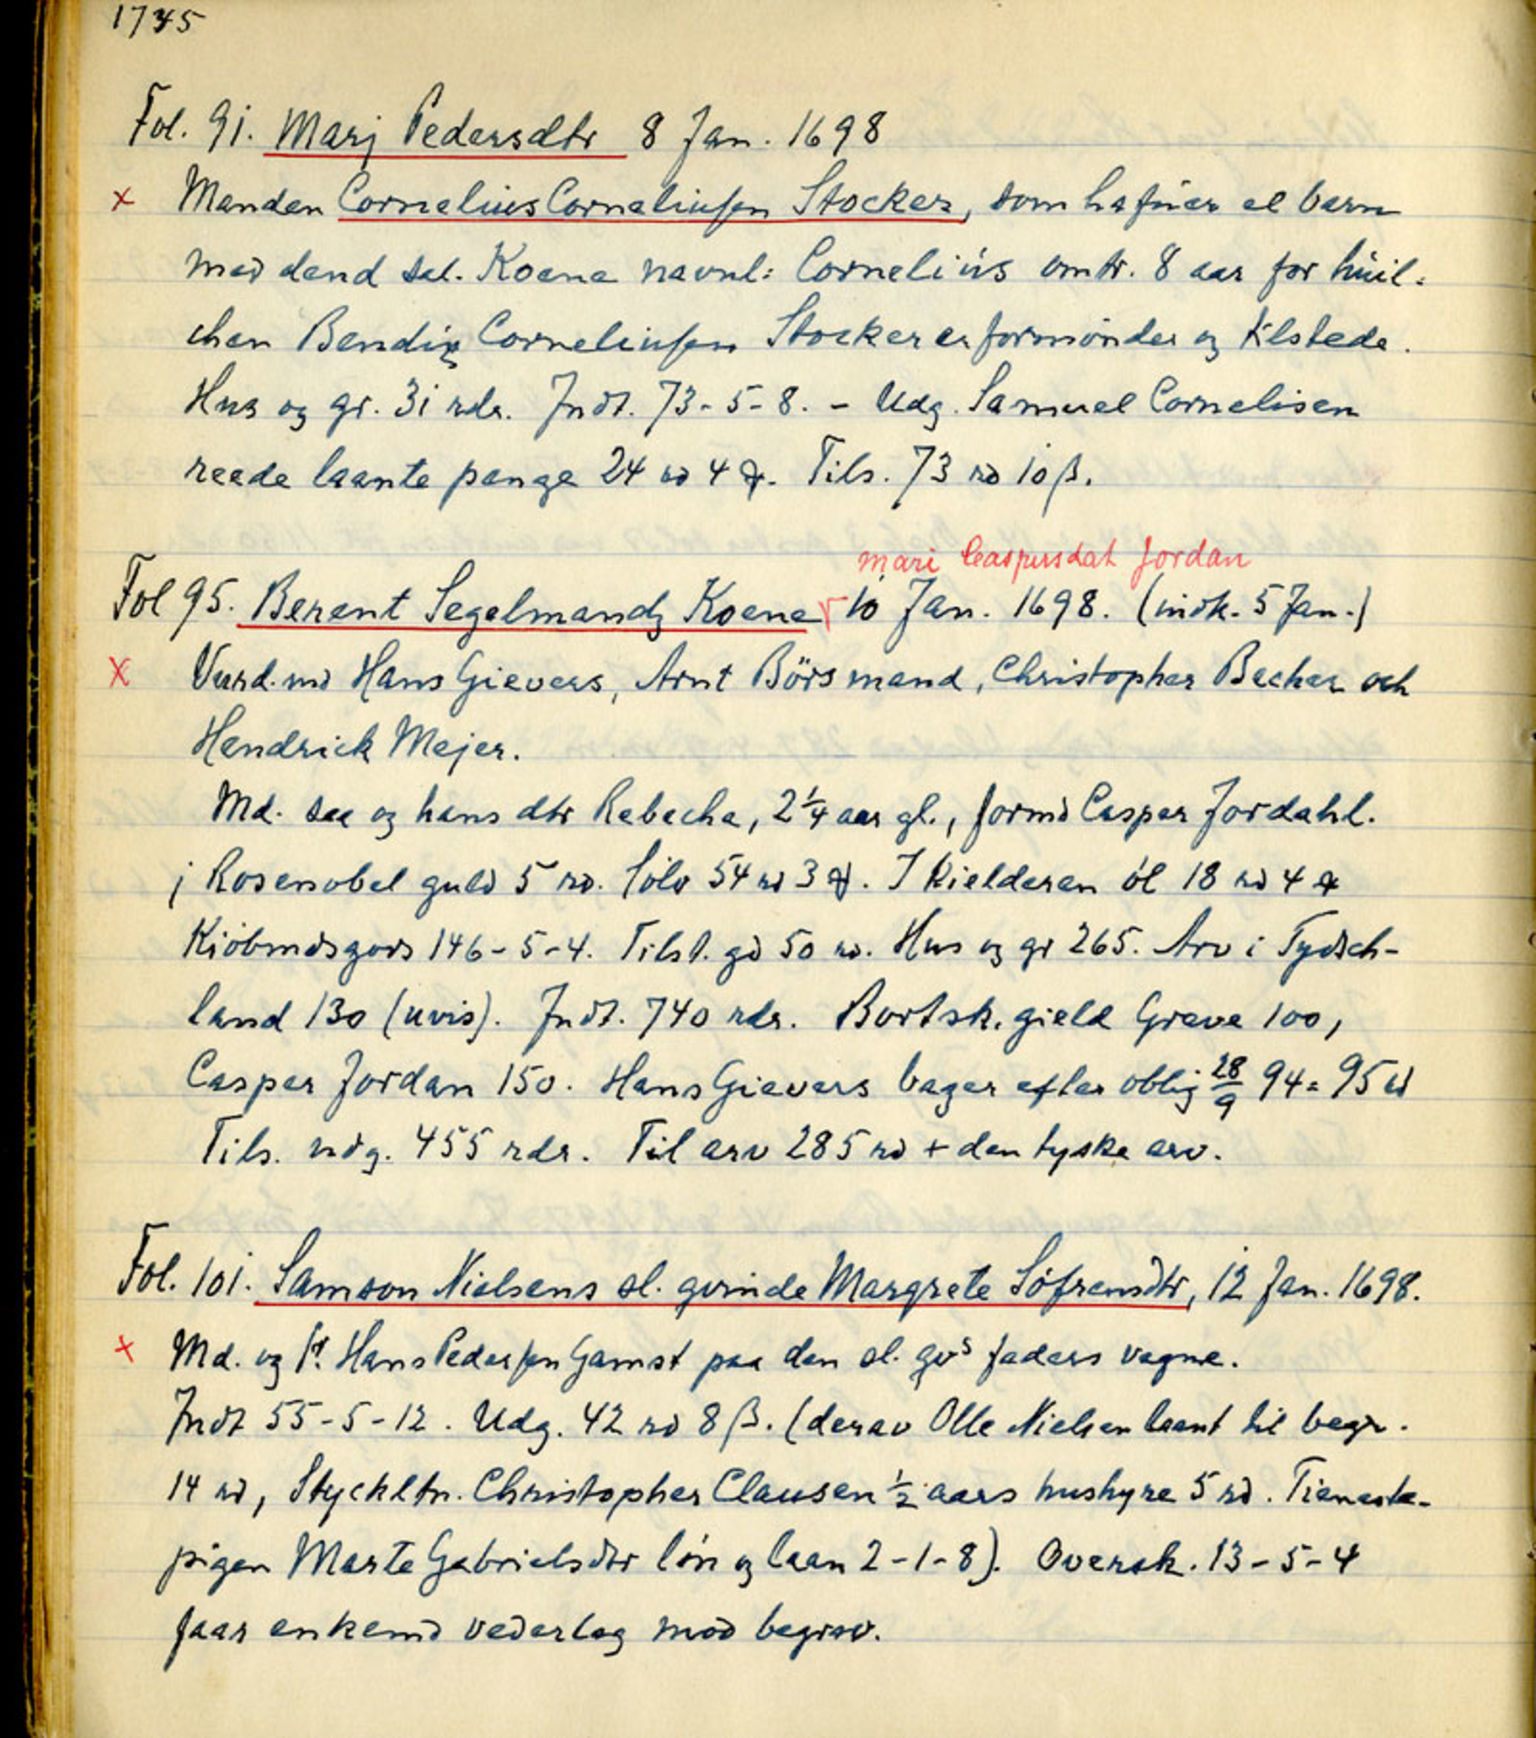 1745
Fol. 91. Marj Pedersdtr 8 Jan. 1698
x Manden Cornelius Corneliussen Stocker, som hafuer el barn
med dend sal. Koene navnl: Cornelius omtr. 8 aar for huil:
chen Bendix Corneliussen Stocker er formønder og tilstede.
Hus og gr. 31 rdr. Indt. 73-5-8. - Udg. Samuel Cornelisen
reede laante penge 24 rd 4 ꝗ. Tils. 73 rd 10 β.
mari Caspersdat Jordan
Fol 95. Berent Segelmands Koene 10 Jan. 1698. (indk. 5 Jan.)
x Vurd. md Hans Gievers, Arnt Börsmand, Christopher Becher och
Hendrick Mejer.
Md. saa og hans dtr Rebecha, 2 1/4 aar gl., formd Casper Jordahl.
j Rosenobel guld 5 rd. Sølv 54 rd 3 ꝗ. I Kielderen øl 18 rd 4 ꝗ
Kiøbmdsgods 146-5-4. Tilst. gd 50 rd. Hus og gr 265. Arv i Tydsch-
land 130 (uvis). Indt. 740 rdr. Bortsk. gield Greve 100,
Casper Jordan 150. Hans Gievers bager efter oblig 28/9 94 = 95 rd
Tils. udg. 455 rdr. Til arv 285 rd + den tyske arv.
Fol. 101. Samson Nielsens sl. qvinde Margrete Søfrensdtr, 12 Jan. 1698.
x Md. og Hans Pedersen Gamst paa den sl. qvs faders vegne.
Indt 55-5-12. Udg. 42 rd 8 β. (derav Olle Nielsen laant til begr.
14 rd, Styckltn. Christopher Clausen 1/2 aars hushyre 5 rd. Tieneste-
pigen Marte Gabrielsdtr løn og laan 2-1-8). Oversk. 13-5-4
faar enkemd vederlag mod begrav.